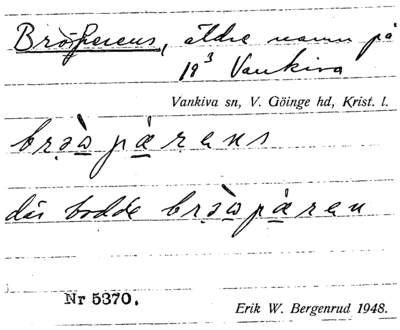 Brösperens, äldre namn på
19³ Vankiva
Vankiva sn, V. Göinge hd, Krist. l.
där bodde
Nr 5370.
Erik W. Bergenrud 1948.